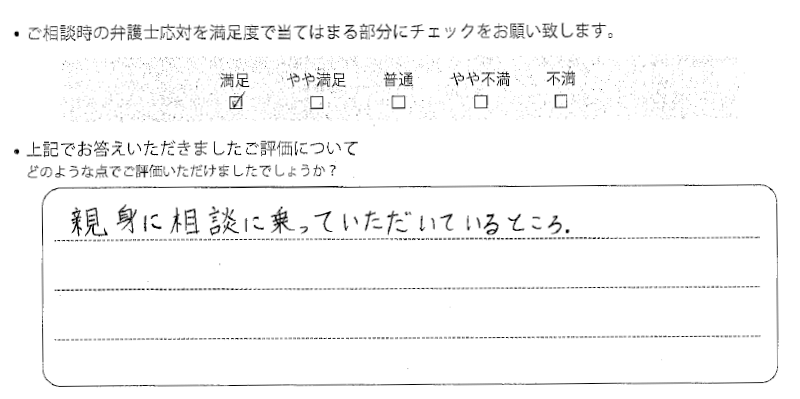 • ご相談時の弁護士応対を満足度で当てはまる部分にチェックをお願い致します。
満足 やや満足 普通 やや不満 不満
☑ ☐ ☐ ☐ ☐
• 上記でお答えいただきましたご評価について
どのような点でご評価いただけましたでしょうか？
親身に相談に乗っていただいているところ.